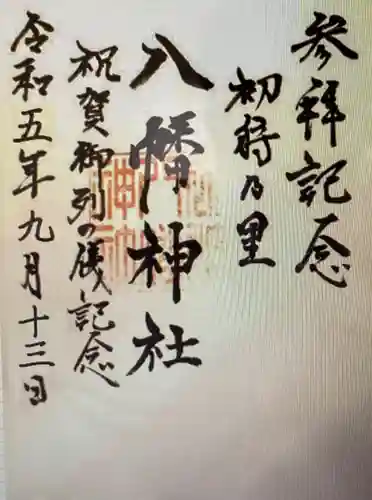 参拝記念
初将乃里
八幡神社
祝賀御列の儀記念
令和五年九月十三日